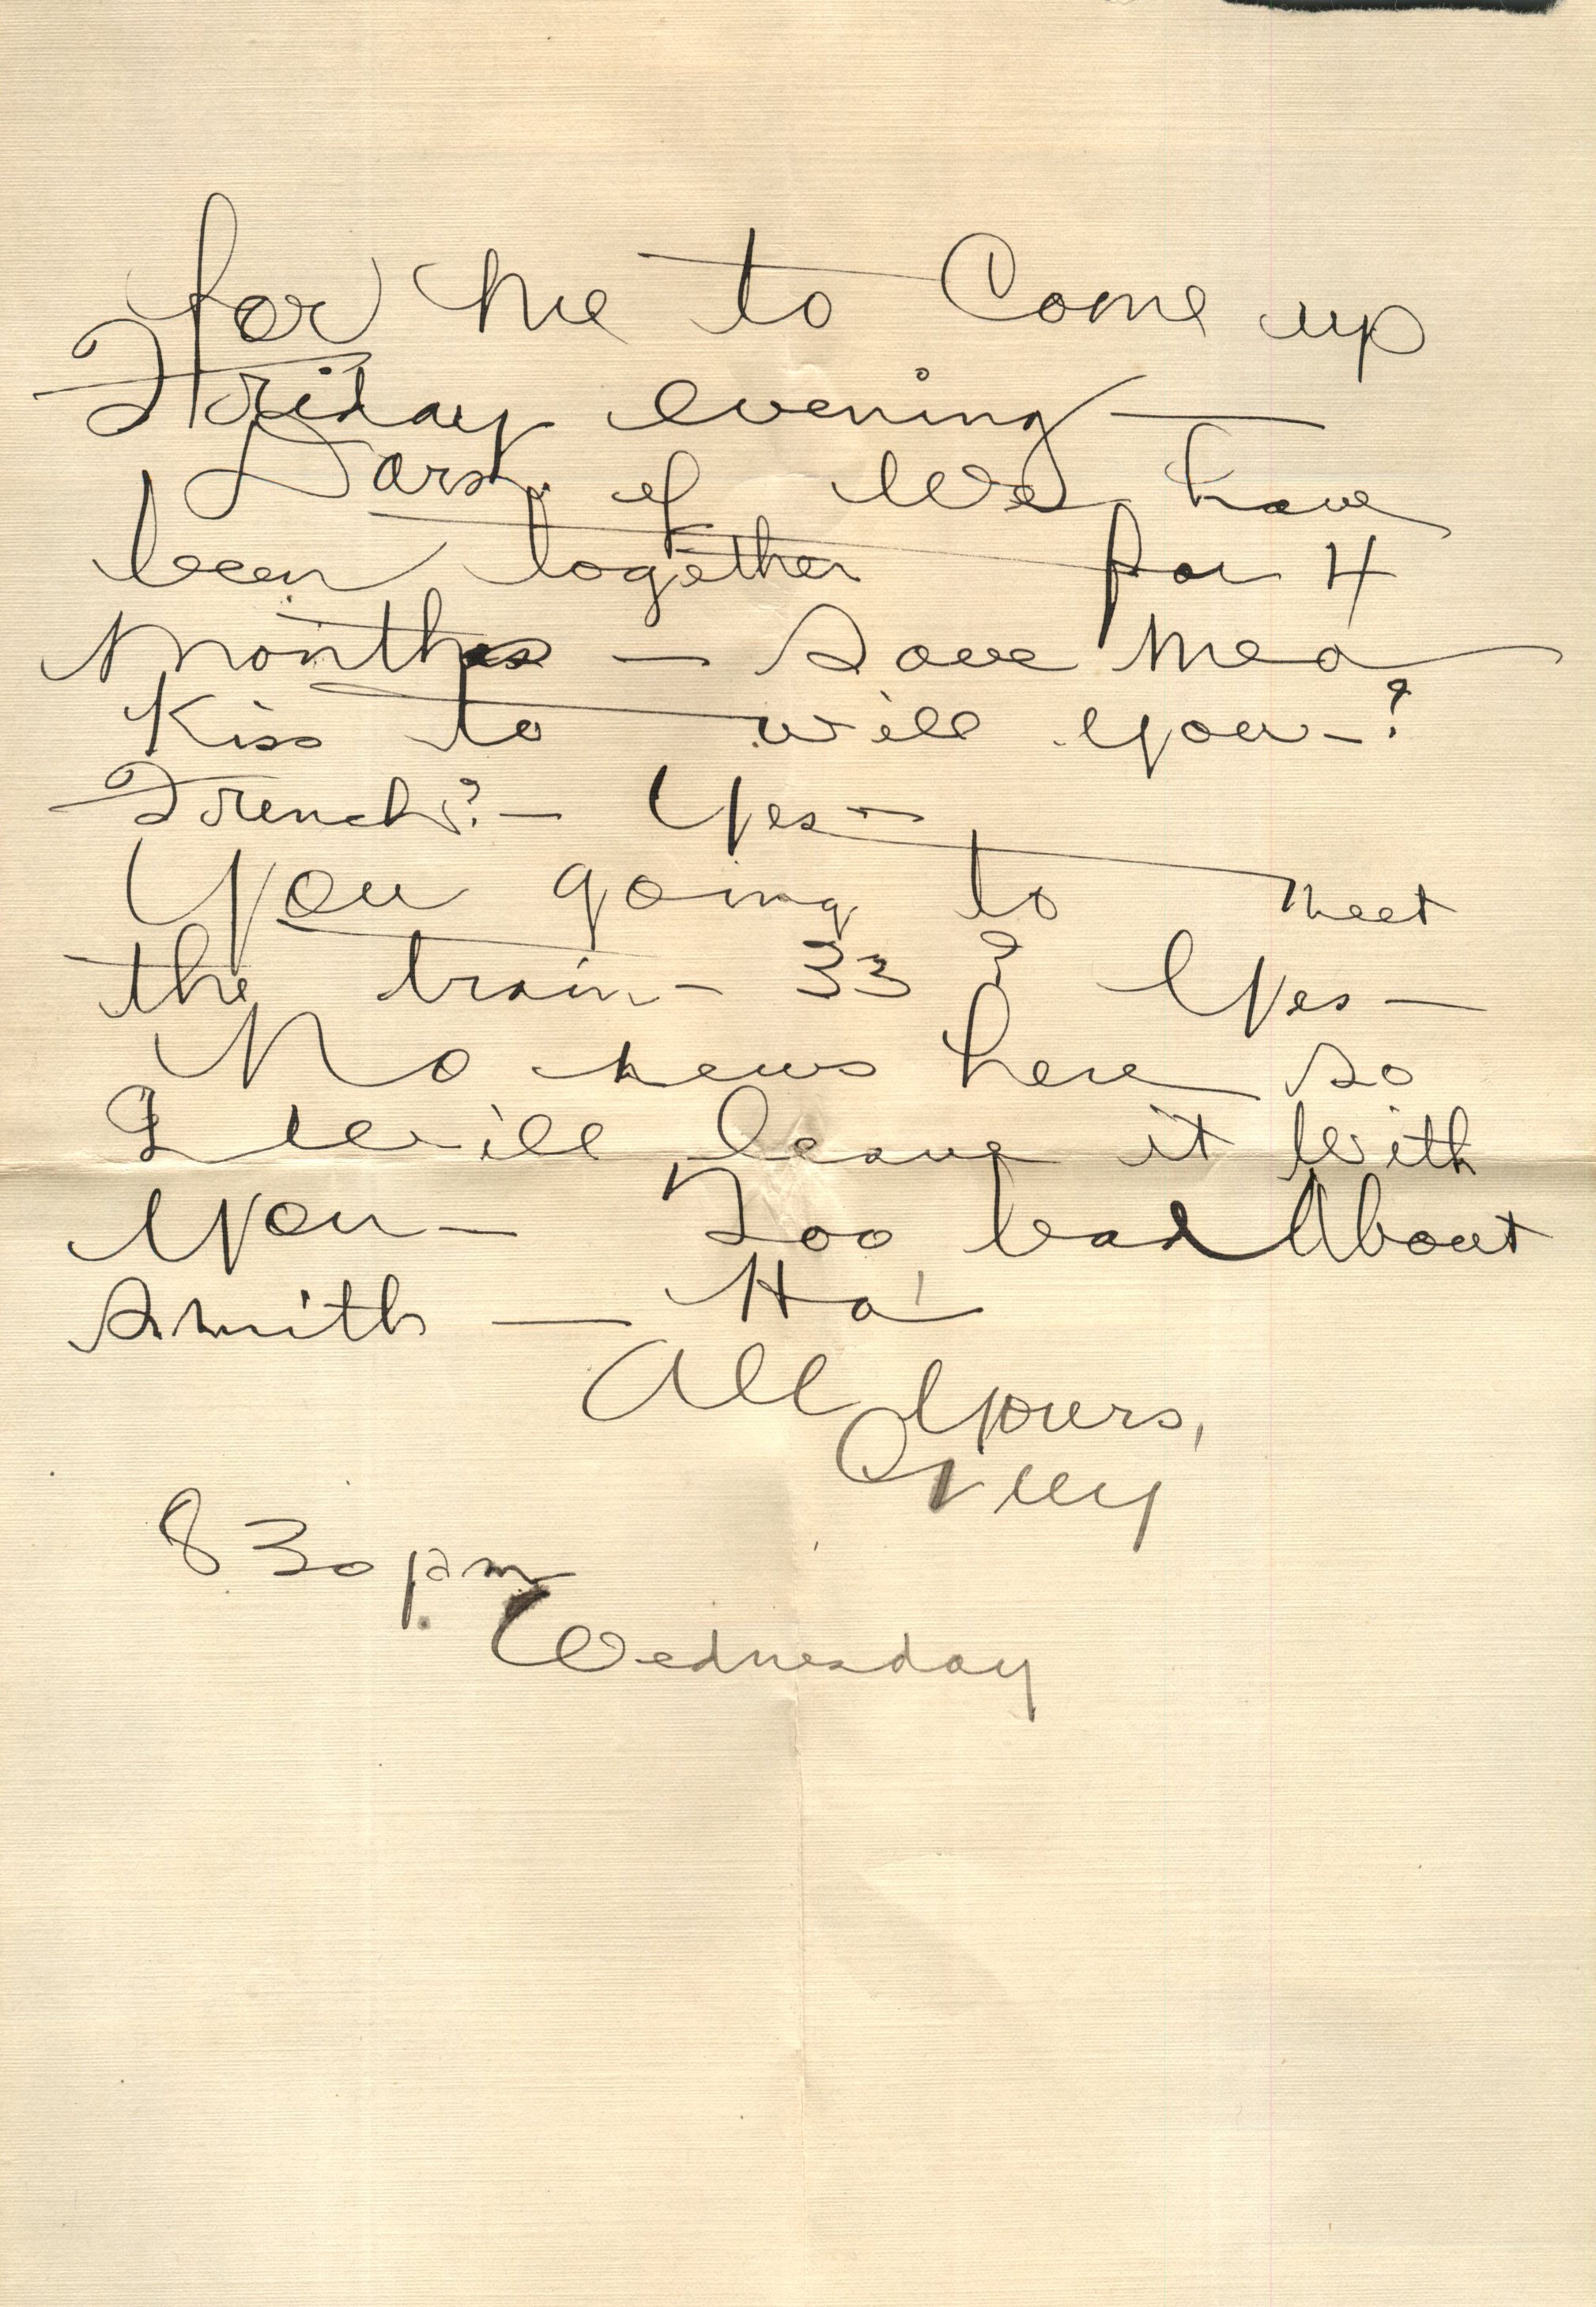 for me to Come up
Friday evening —
Dars. if We have
been together for 4
Months — Save me a
Kiss to will you - ?
French? — Yes —
You going to meet
the train - 33 ? Yes —
No news here so
I Will leave it With
You — Too bad About
Smith — Ha!
All Yours,
8 30 pm
Wednesday